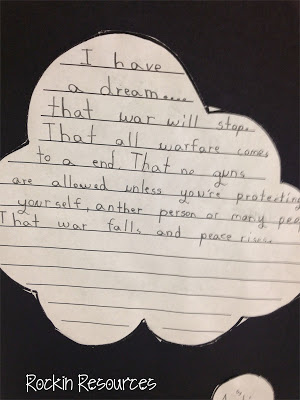 I have
a dream....
that war will stop.
That all warfare comes
to a end. That no guns
are allowed unless you're protecting
yourself, anther person or many peop
That war falls and peace rises.
Rockin Resources